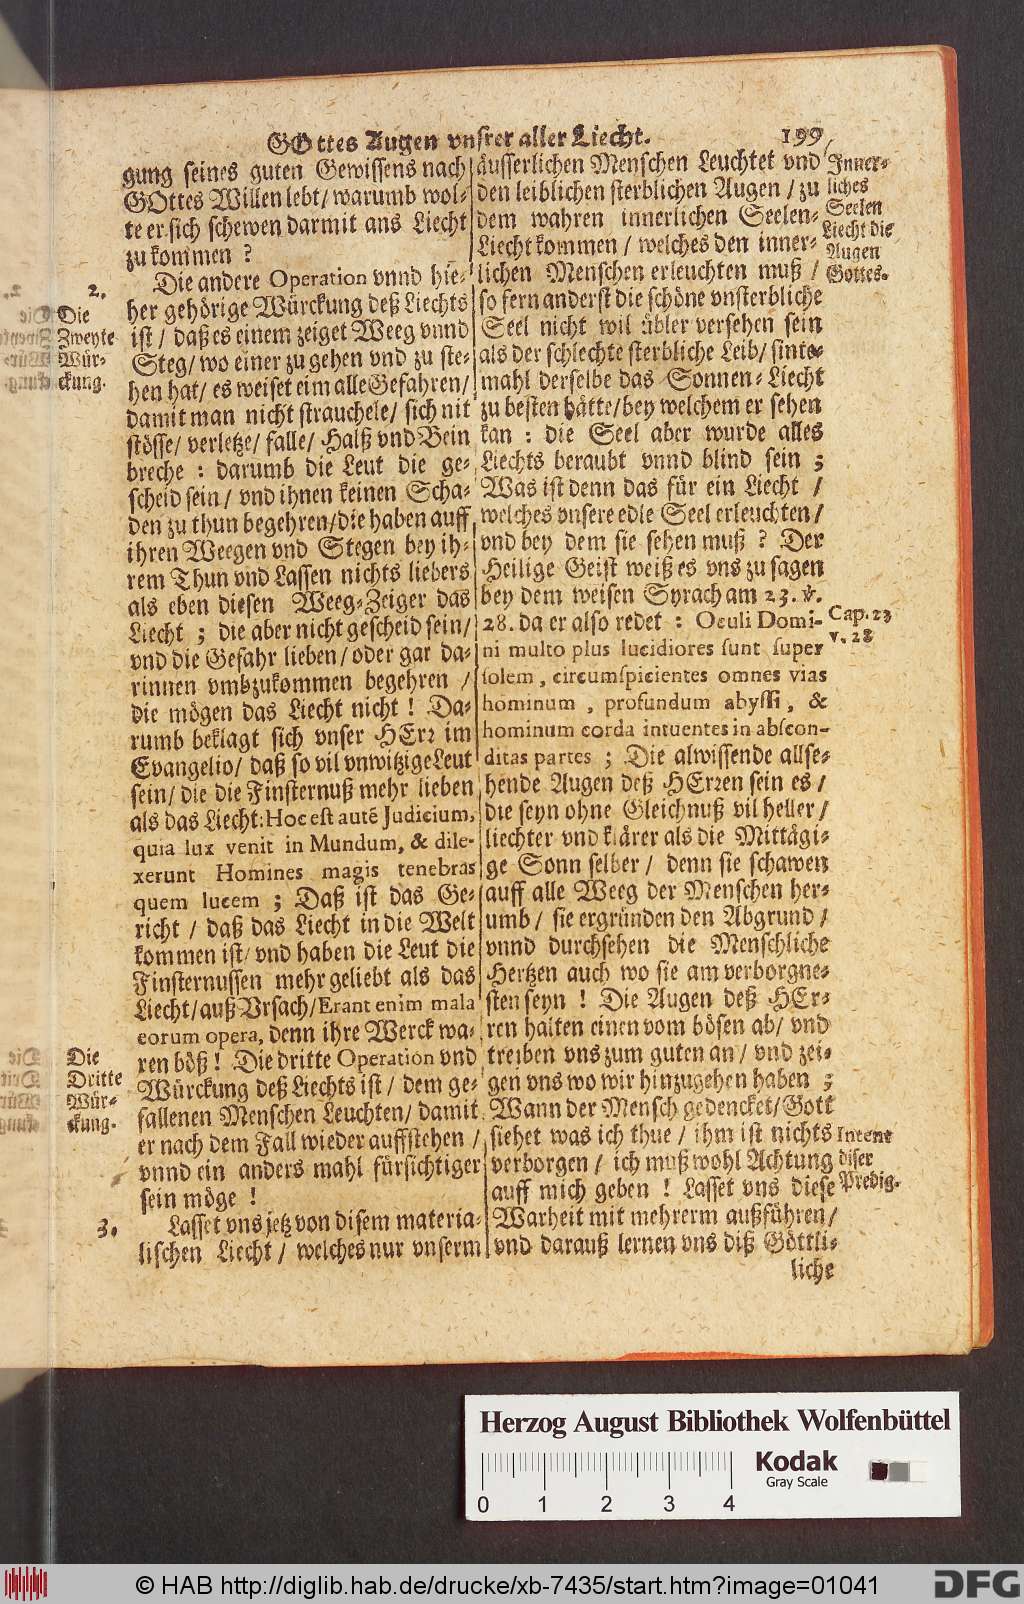 GOttes Augen vnsrer aller Liecht. 199
gung seines guten Gewissens nach
GOttes Willen lebt / warumb wol-
te er sich schewen darmit ans Liecht
zu kommen ?
2.
Die
Zweyte
Wür-
ckung.
Die andere Operation vnnd hie-
her gehörige Würckung deß Liechts
ist / daß es einem zeiget Weeg vnnd
Steg / wo einer zu gehen vnd zu ste-
hen hat / es weiset eim alle Gefahren /
damit man nicht strauchele / sich nit
stösse / verletze / falle / Halß vnd Bein
breche : darumb die Leut die ge-
scheid sein / vnd ihnen keinen Scha-
den zu thun begehren / die haben auff
ihren Weegen vnd Stegen bey ih-
rem Thun vnd Lassen nichts liebers
als eben diesen Weeg-Zeiger das
Liecht ; die aber nicht gescheid sein /
vnd die Gefahr lieben / oder gar da-
rinnen vmbzukommen begehren /
die mögen das Liecht nicht ! Da-
rumb beklagt sich vnser HErr im
Evangelio / daß so vil vnwitzige Leut
sein / die die Finsternuß mehr lieben
als das Liecht: Hoc est autē Judicium,
quia lux venit in Mundum, & dile-
xerunt Homines magis tenebras
quem lucem ; Daß ist das Ge-
richt / daß das Liecht in die Welt
kommen ist / vnd haben die Leut die
Finsternussen mehr geliebt als das
Liecht / auß Vrsach / Erant enim mala
eorum opera, denn ihre Werck wa-
Die
Dritte
Wür-
ckung.
ren böß ! Die dritte Operation vnd
Würckung deß Liechts ist / dem ge-
fallenen Menschen Leuchten / damit
er nach dem Fall wieder auffstehen /
vnnd ein anders mahl fürsichtiger
sein möge !
3.
Lasset vns jetz von disem materia-
lischen Liecht / welches nur vnserm
äusserlichen Menschen Leuchtet vnd
den leiblichen sterblichen Augen / zu
dem wahren innerlichen Seelen-
Liecht kommen / welches den inner-
lichen Menschen erleuchten muß /
so fern anderst die schöne vnsterbliche
Seel nicht wil übler versehen sein
als der schlechte sterbliche Leib / sinte-
mahl derselbe das Sonnen-Liecht
zu besten hätte / bey welchem er sehen
kan : die Seel aber wurde alles
Liechts beraubt vnnd blind sein ;
Was ist denn das für ein Liecht /
welches vnsere edle Seel erleuchten /
vnd bey dem sie sehen muß ? Der
Heilige Geist weiß es vns zu sagen
bey dem weisen Syrach am 23. v.
28. da er also redet : Oculi Domi-
ni multo plus lucidiores sunt super
solem, circumspicientes omnes vias
hominum, profundum abyssi, &
hominum corda intuentes in abscon-
ditas partes ; Die alwissende allse-
hende Augen deß HErren sein es /
die seyn ohne Gleichnuß vil heller /
liechter vnd klärer als die Mittägi-
ge Sonn selber / denn sie schawen
auff alle Weeg der Menschen her-
umb / sie ergründen den Abgrund /
vnnd durchsehen die Menschliche
Hertzen auch wo sie am verborgne-
sten seyn ! Die Augen deß HEr-
ren halten einen vom bösen ab / vnd
treiben vns zum guten an / vnd zei-
gen vns wo wir hinzugehen haben ;
Wann der Mensch gedencket / Gott
siehet was ich thue / ihm ist nichts
verborgen / ich muß wohl Achtung
auff mich geben ! Lasset vns diese
Warheit mit mehrerm außführen /
vnd darauß lernen vns diß Göttli-
liche
Inner-
liches
Seelen
Liecht die
Augen
Gottes.
Cap. 23
v. 28
Intent
diser
Predig.
Herzog August Bibliothek Wolfenbüttel
Kodak
Gray Scale
0 1 2 3 4
© HAB http://diglib.hab.de/drucke/xb-7435/start.htm?image=01041
DFG